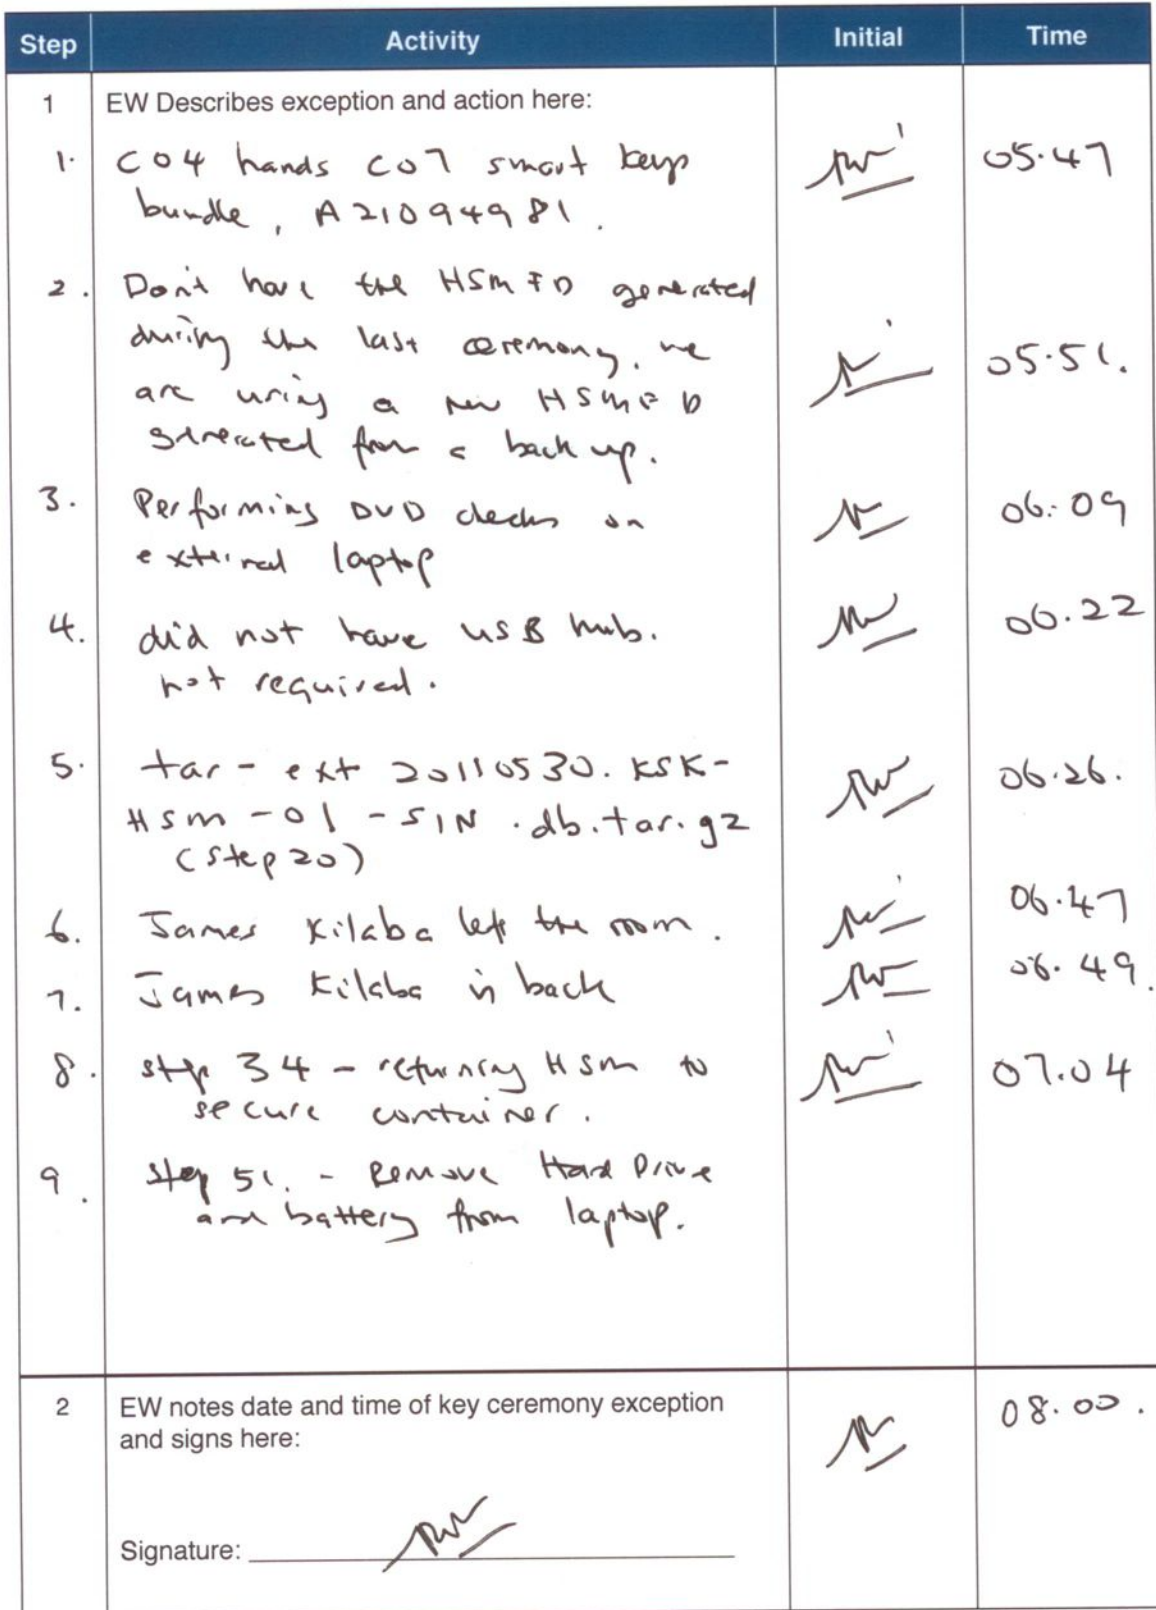 Step Activity Initial Time
1 EW Describes exception and action here:
1. CO4 hands CO7 smart keys 05.47
bundle, A21094981.
2. Don't have the HSMFD generated
during the last ceremony. we 05.51.
are using a new HSMFD
generated from a back up.
3. Performing DVD checks on 06.09
external laptop
4. did not have USB hub. 06.22
not required.
5. tar - ext 20110530.KSK- 06.26.
HSM-01-SIN.db.tar.gz
(step 20)
6. James Kilaba left the room. 06.47
7. James Kilaba is back 06.49.
8. step 34 - returning HSM to 07.04
secure container.
9. step 51. - Remove Hard Drive
and battery from laptop.
2 EW notes date and time of key ceremony exception 08.00.
and signs here:
Signature: